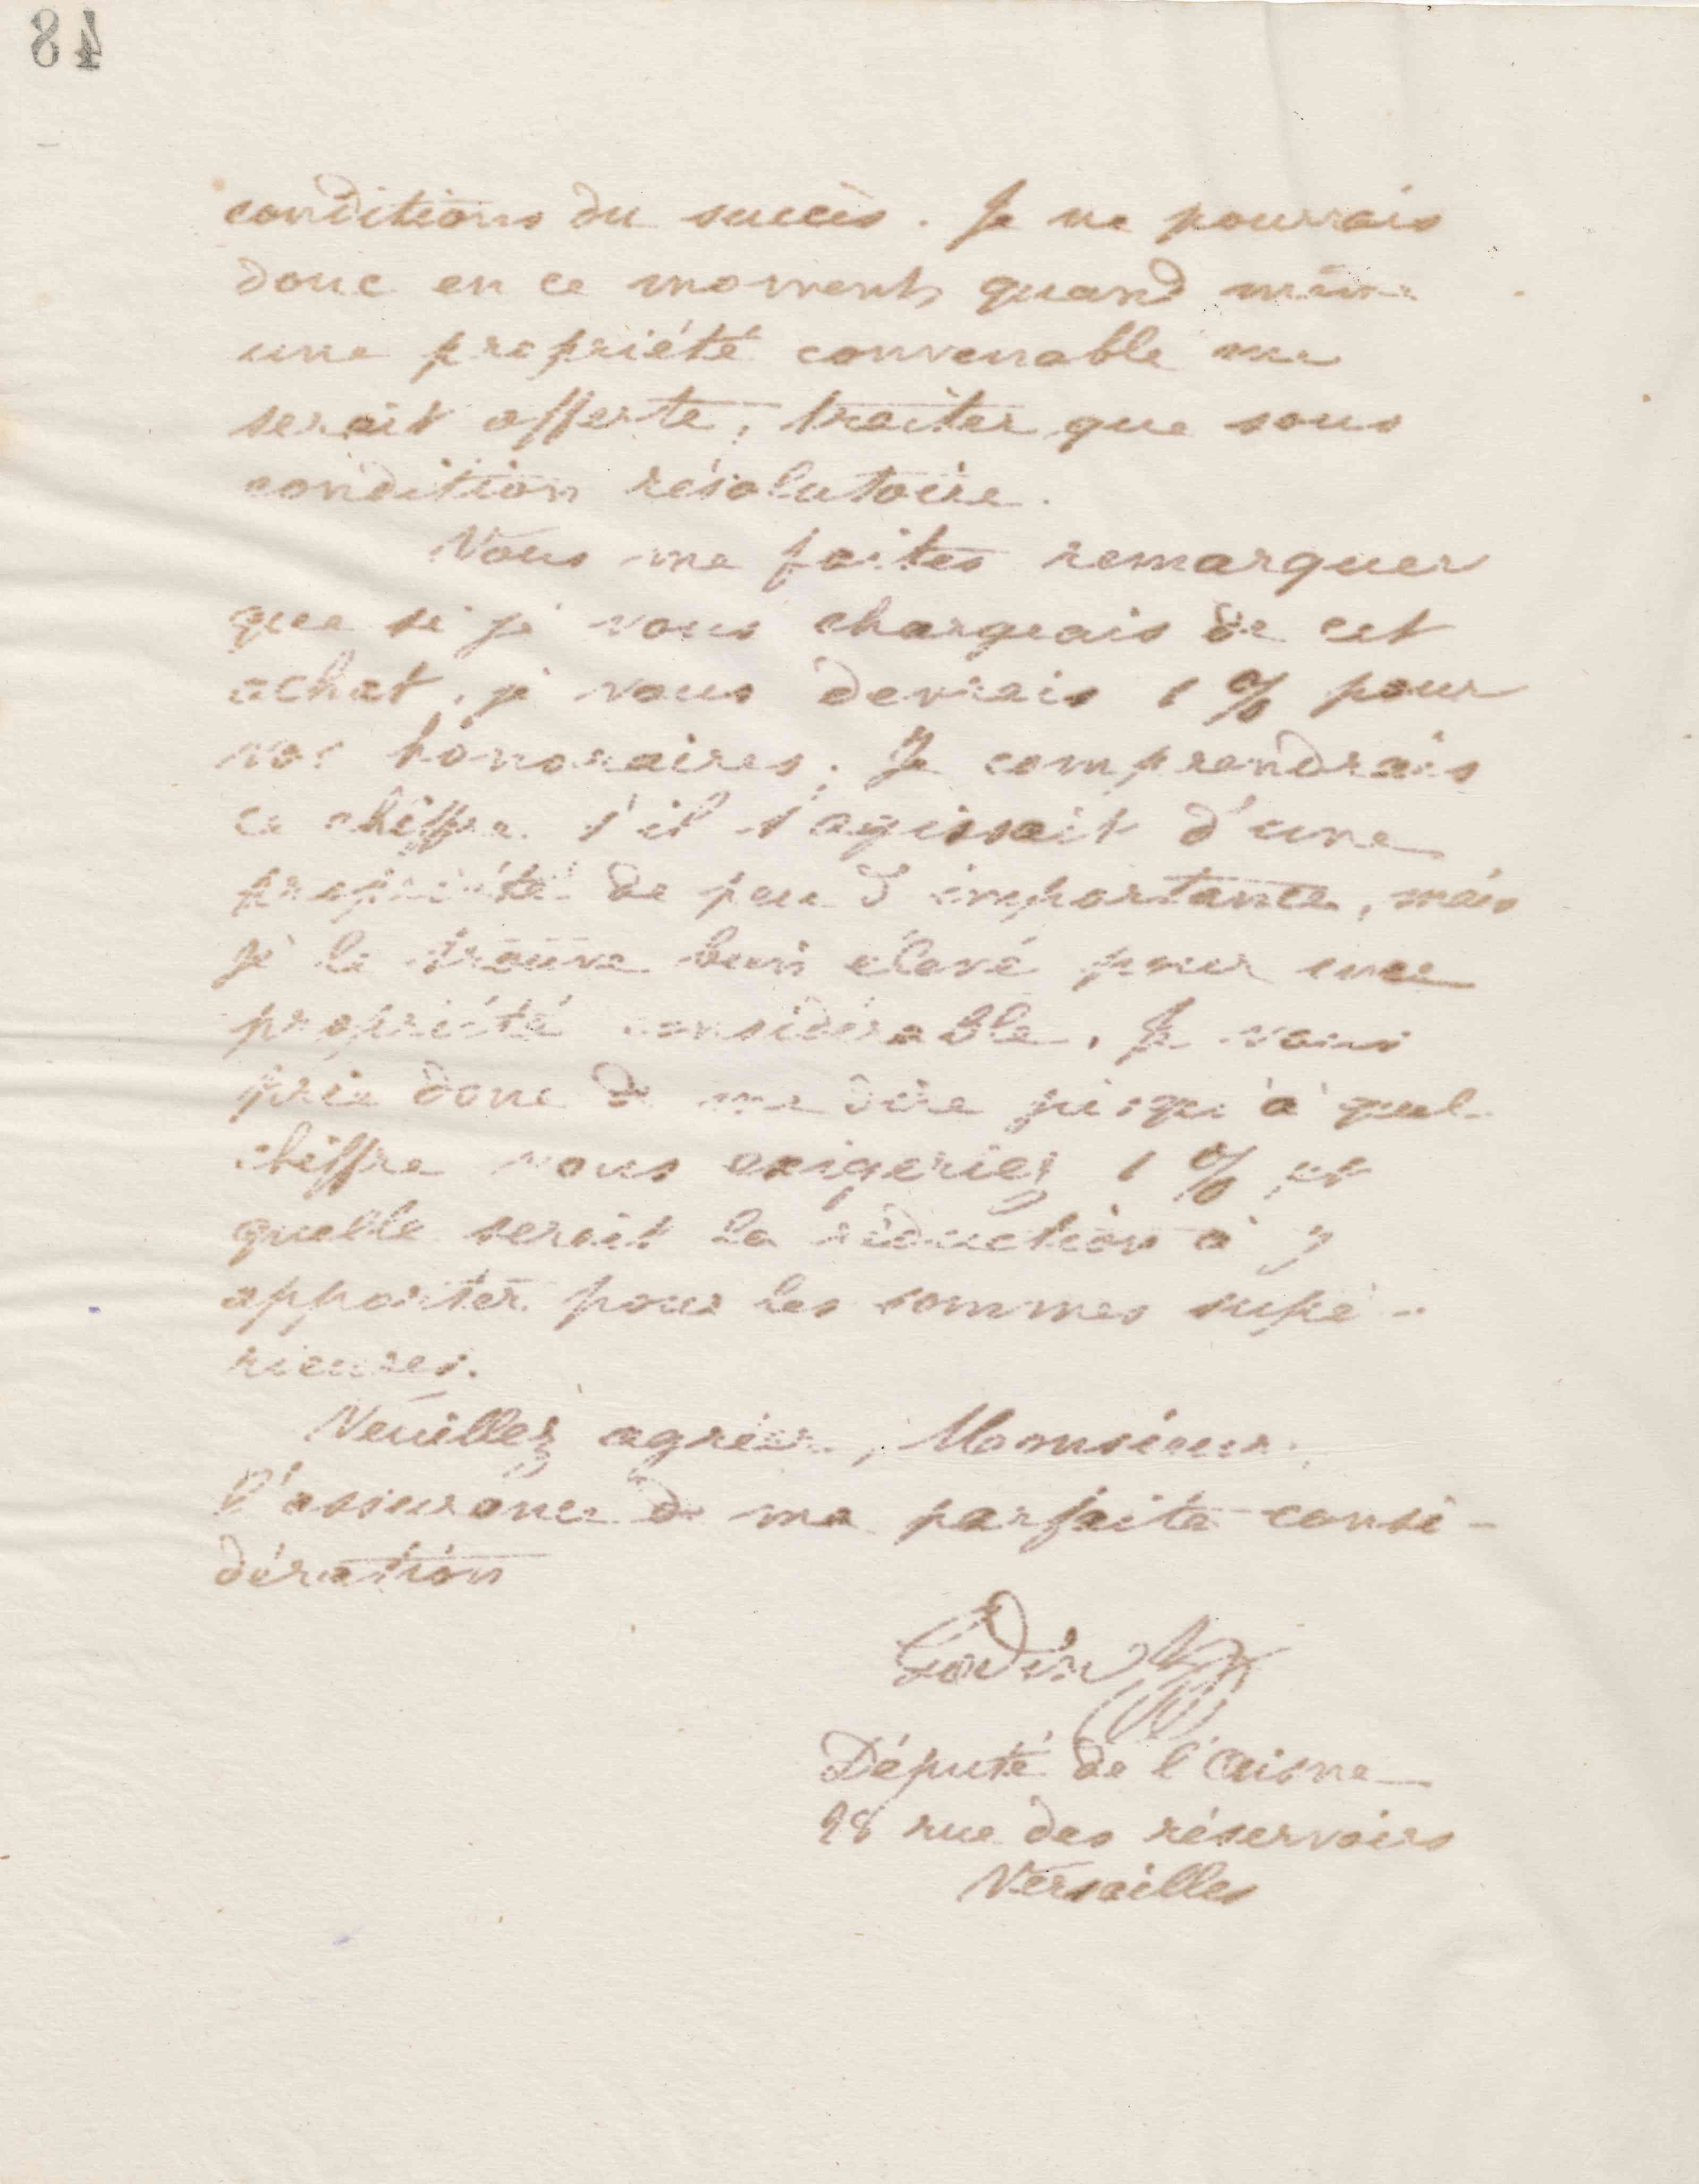 48
conditions du succès. Je ne pourrais
donc en ce moment, quand même
une propriété convenable me
serait offerte, traiter que sous
condition résolutoire.
Vous me faites remarquer
que si je vous chargeais de cet
achat, je vous devrais 1 % pour
vos honoraires. Je comprendrais
ce chiffre s'il s'agissait d'une
propriété de peu d'importance, mais
je le trouve bien élevé pour une
propriété considérable. Je vous
prie donc de me dire jusqu'à quel
chiffre vous exigeriez 1 % et
quelle serait la réduction à y
apporter pour les sommes supé-
rieures.
Veuillez agréer, Monsieur,
l'assurance de ma parfaite consi-
dération
Godin
Député de l'Aisne
28 rue des réservoirs
Versailles